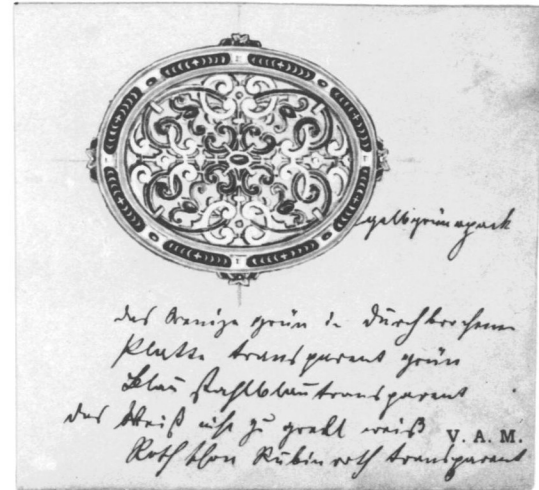 gelbgrün opack
das Wenige grün d. durchbrochene
Platte transparent grün
Blau stahlblau transparent
das Weiß nicht zu grell weiß
V. A. M.
Roth schön Rubinroth transparent